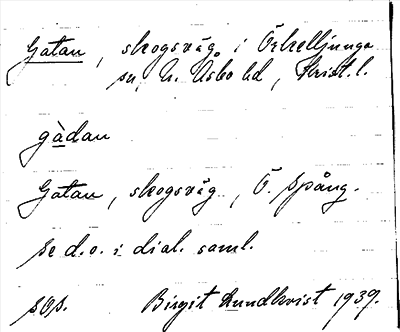 Gatan, skogsväg i Örkelljunga
sn, N. Åsbo hd, Krist. l.
gàdan
Gatan, skogsväg, Ö. Spång.
se d.o. i dial. saml.
sgs. Birgit Lundkvist 1939.